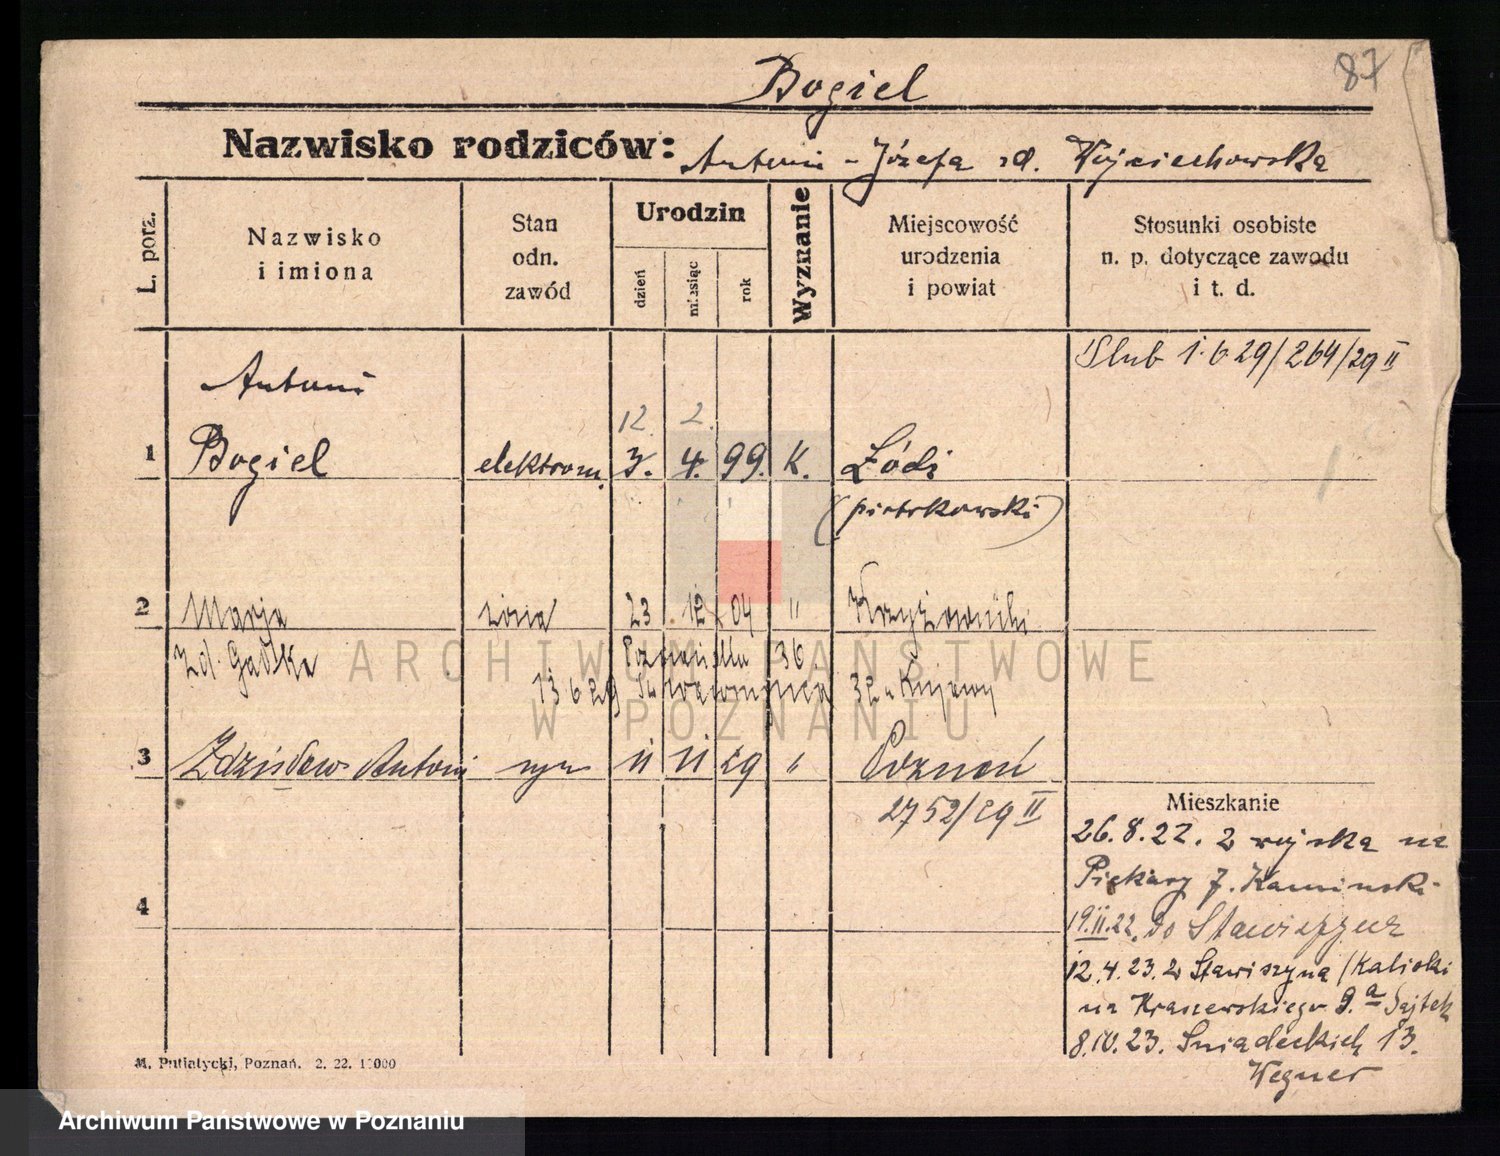 87
Bogiel
Nazwisko rodziców: Antoni - Józefa zd. Wojciechowska
L. porz.
Nazwisko i imiona
Stan odn. zawód
Urodzin
dzień
miesiąc
rok
Wyznanie
Miejscowość urodzenia i powiat
Stosunki osobiste n. p. dotyczące zawodu i t. d.
Ślub 1.6.29/264/29 II
Antoni
12. 2.
1 Bogiel elektrom. 3. 4. 99. K. Łódź
(piotrkowski)
2 Marja żona 23 12 04 " Krzyżowniki
zd. Gadtke 36
13 6 29
3 Zdzisław Antoni syn 11 11 29 " Poznań
2752/29 II
4
Mieszkanie
26.8.22. z wojska na
Piekary 7. Kaminski
19.II.22. do
12.4.23. z Stawiszyna /Kaliski
na Kraszewskiego 9.a Sajtek
8.IV.23. Sniadeckich 13.
Wegner
M. Putiatycki, Poznań. 2. 22. 11000
ARCHIWUM PAŃSTWOWE
W POZNANIU
Archiwum Państwowe w Poznaniu